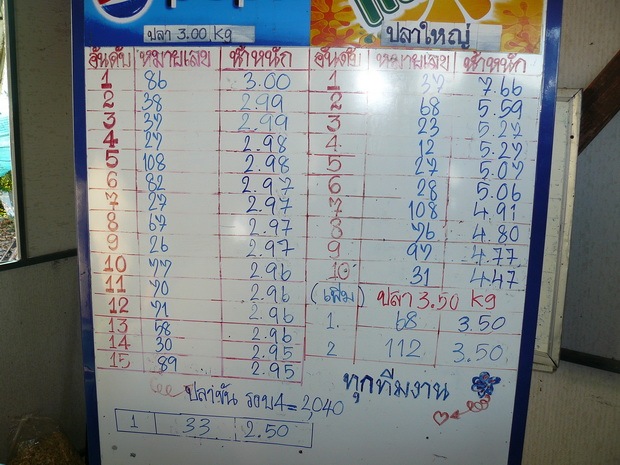 ปลา 3.00 kg
อันดับ หมายเลข น้ำหนัก
1 86 3.00
2 38 2.99
3 37 2.99
4 27 2.98
5 108 2.98
6 82 2.97
7 27 2.97
8 67 2.97
9 26 2.97
10 77 2.96
11 70 2.96
12 71 2.96
13 58 2.96
14 30 2.95
15 89 2.95
ปลาใหญ่
อันดับ หมายเลข น้ำหนัก
1 37 7.66
2 68 5.59
3 23 5.27
4 12 5.27
5 27 5.07
6 28 5.06
7 108 4.91
8 76 4.80
9 97 4.77
10 31 4.47
(เสริม) ปลา 3.50 kg
1. 68 3.50
2 112 3.50
ทุกทีมงาน
รอบ4=2040
1 33 2.50